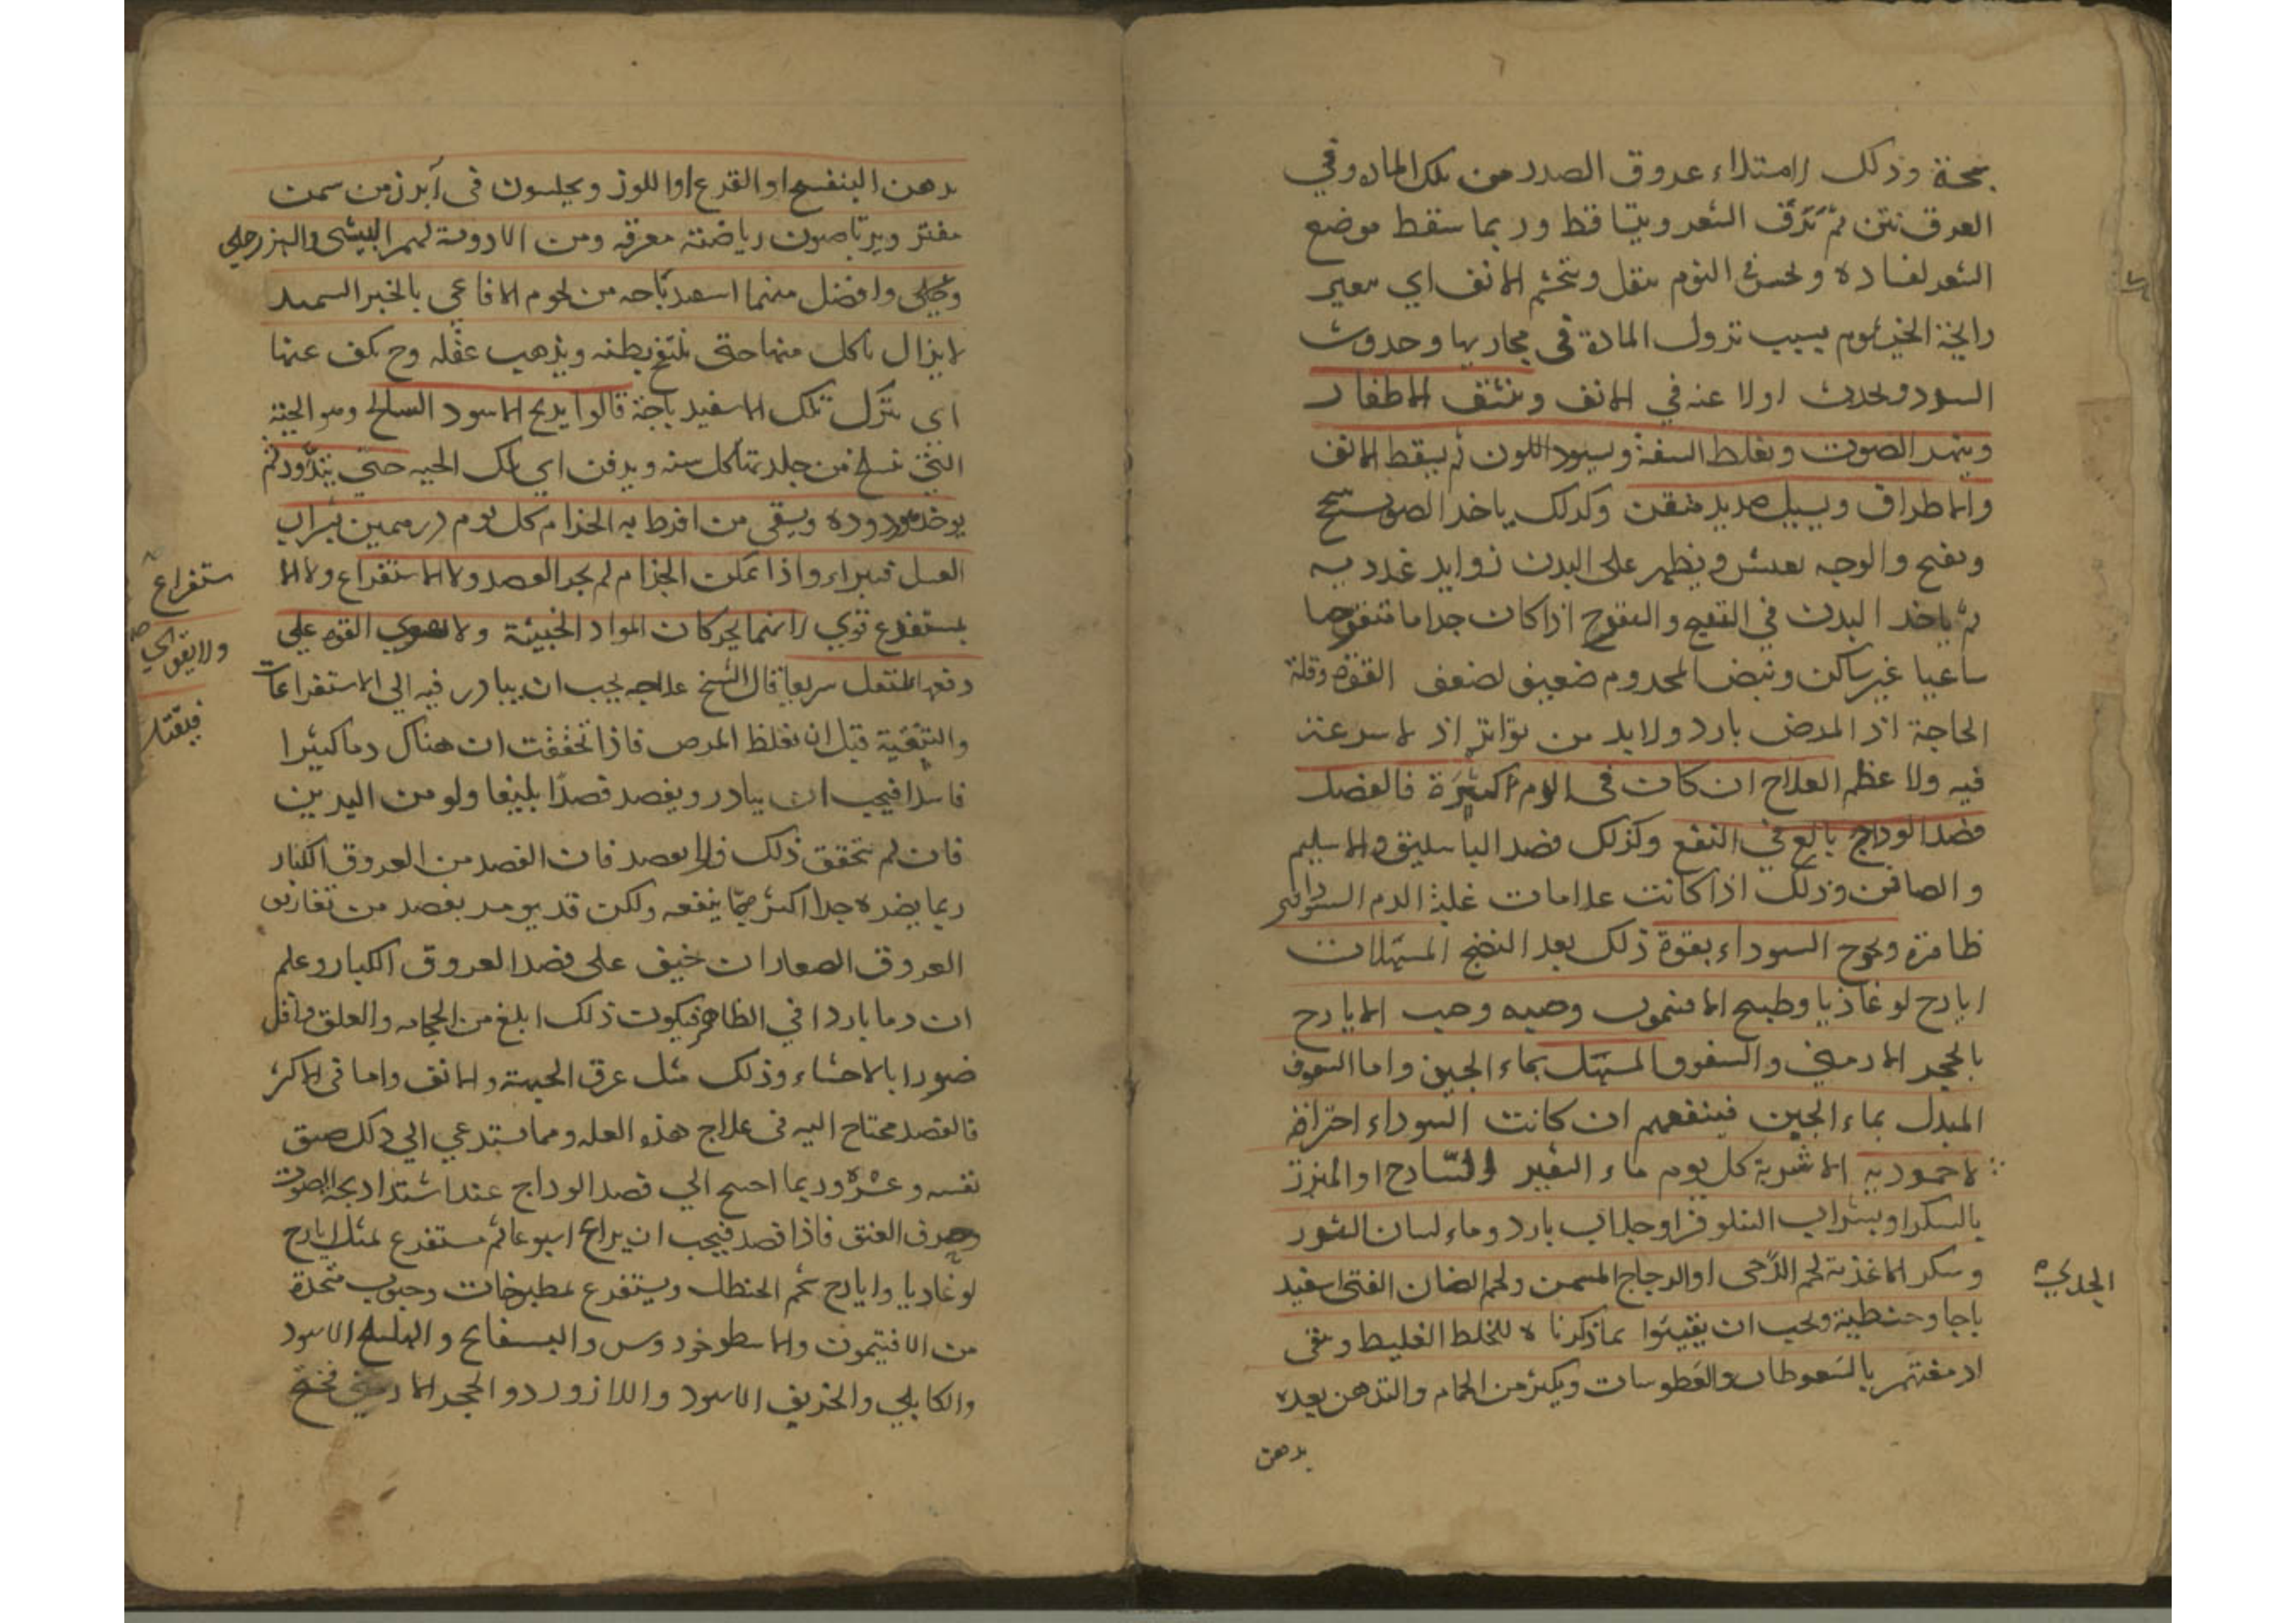 بحة وذلك لامتلاء عروق الصدر من تلك الماده وفي
العرق نتن ثم تدق الشعر ويتساقط وربما سقط موضع
الشعر لفساده ويحس في النوم بثقل ويتخشم الانف اي يتغير
رايحة الخيشوم بسبب نزول المادة في مجاريها وحدوث
السدد ويحدث اولا عنه في الانف وتتشقق الاظفار
الصوت ويغلظ الشفة ويسود اللون ثم يسقط الانف
والاطراف ويسيل صديد منتن وكذلك ياخذ الصوت
والوجه ويظهر على البدن زوايد غددية
ثم ياخذ البدن في التقيح والتقرح اذا كان جذاما متقرحا
ساعيا غير ساكن ونبض المجذوم ضعيف لضعف القوة وقلة
الحاجة اذ المرض بارد ولا بد من تواتر اذ لا سرعة
فيه ولا عظم العلاج ان كان في الدم كثرة فالفصد
فصد الوداج بالغ في النفع وكذلك فصد الباسليق والاسيلم
والصافن وذلك اذا كانت علامات غلبة الدم السوداوي
ظاهرة ويخرج السوداء بقوة ذلك بعد النضج المسهلات
ايارج لوغاذيا وطبيخ الافتيمون وحبه وحب الايارج
بالحجر الارمني والسفوف المسهل بماء الجبن واما السفوف
المبدل بماء الجبن فينفعهم ان كانت السوداء احتراقية
لا جمودية الاشربة كل يوم ماء الشعير الساذج او المبزر
بالسكر او بشراب النيلوفر او جلاب بارد وماء لسان الثور
وسكر الاغذية لحم الدجاج المسمن ولحم الضان الفتي اسفيد
الجدي
باجا وحنطية ويجب ان يقيئوا بما ذكرناه للخلط الغليظ وينقى
ادمغتهم بالسعوطات والعطوسات ويكثر من الحمام والتدهن بعده
بدهن
بدهن البنفسج او القرع او اللوز ويجلسون في آبزن من سمن
مفتر ويرتاضون رياضة معرقة ومن الادوية لهم البيشي والبزرجلي
وافضل منهما اسفيدباجه من لحوم الافاعي بالخبز السميد
لا يزال ياكل منها حتى ينتفخ بطنه ويذهب عقله وح يكف عنها
اي يترك تلك الاسفيدباجة قالوا يذبح الاسود السالخ وهو الحية
التي تسلخ من جلدها كل سنه ويدفن اي تلك الحيه حتى يتدود ثم
يوخذ دوده ويسقى من افرط به الجذام كل يوم درهمين بشراب
العسل فيبراء واذا تمكن الجذام لم يجز الفصد ولا الاستفراغ ولا الا
ستفراغ
بمستفرغ قوي لانهما يحركان المواد الخبيثة ولا تقوى القوة على
ولا يقوى
دفعها فيقتل سريعا قال الشيخ علاجه يجب ان يبادر فيه الى الاستفراغات
فيقتل
والتنقية قبل ان يغلظ المرض فاذا تحققت ان هناك دما كثيرا
فاسدا فيجب ان يبادر ويفصد فصدا بليغا ولو من اليدين
فان لم تتحقق ذلك فلا يفصد فان الفصد من العروق الكبار
ربما يضره جدا اكثر مما ينفعه ولكن قد يومر بفصد من تفاريق
العروق الصغار ان خيف على فصد العروق الكبار وعلم
ان دما باردا في الظاهر فيكون ذلك ابلغ من الحجامه والعلق واقل
ضررا بالاحشاء وذلك مثل عرق الجبهة والانف واما في الاكثر
فالفصد محتاج اليه في علاج هذه العله ومما يستدعي الى ذلك ضيق
نفسه وعسره وربما احتيج الى فصد الوداج عند اشتداد بحة الصوت
وخوف الخنق فاذا فصد فيجب ان يراح اسبوعا ثم يستفرغ بمثل ايارج
لوغاديا وايارج شحم الحنظل ويستفرغ بمطبوخات وحبوب متخذة
من الافتيمون والاسطوخودوس والبسفايج والهليلج الاسود
والكابلي والخربق الاسود واللازورد والحجر الارمني